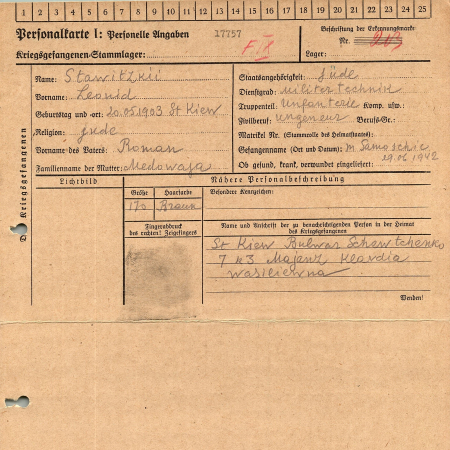 1 2 3 4 5 6 7 8 9 10 11 12 13 14 15 16 17 18 19 20 21 22 23 24 25
Personalkarte I: Personelle Angaben
17757
Beschriftung der Erkennungsmarke
Kriegsgefangenen-Stammlager:
F. IX
Nr. 203
Lager:
Des Kriegsgefangenen
Name: Stawitzkii
Vorname: Leonid
Geburtstag und -ort: 20.05.1903 St Kiew
Religion: jude
Vorname des Vaters: Roman
Familienname der Mutter: Medowaja
Staatsangehörigkeit: Jüde
Dienstgrad: Militertechnik
Truppenteil: Unfanterie Komp. usw.
Zivilberuf: Ungeneur Berufs-Gr.
Matrikel Nr. (Stammrolle des Heimatstaates):
Gefangennahme (Ort und Datum): m Samoschie
29.06 1942
Ob gesund, krank, verwundet eingeliefert:
Lichtbild
Nähere Personalbeschreibung
Größe Haarfarbe Besondere Kennzeichen:
170 Braun
Fingerabdruck
des rechten! Zeigefingers
Name und Anschrift der zu benachrichtigenden Person in der Heimat
des Kriegsgefangenen
St Kiew Bulwar Schewtchenko
7 k 3 Majenz Klavdia
Wasiliewna
Wenden!